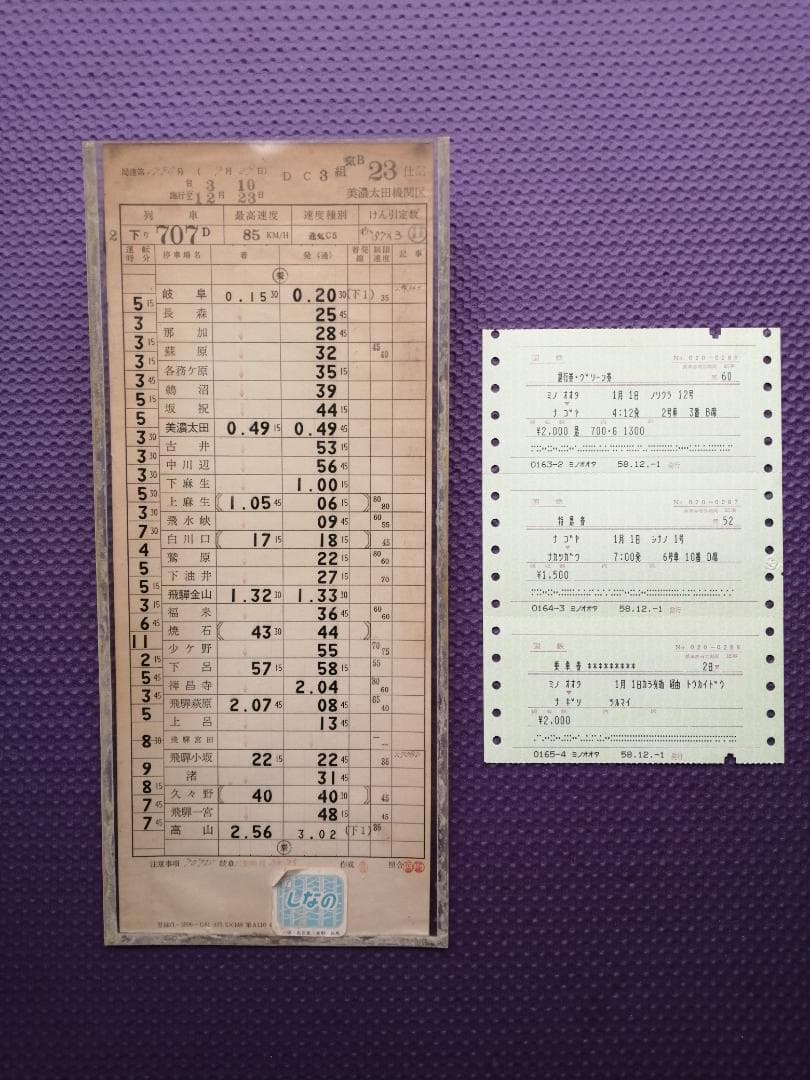 DC3組 変B 23仕業
自 3月10日
施行至12月23日
美濃太田機関区
列車 最高速度 速度種別 けん引定数
2 下り 707D 85KM/H 通気C5
運転時分 停車場名 着 発(通) 着発線 制限速度 記事
岐阜 0.15 30 0.20 30 (下1) 35
5 15 長森 25 45
3 那加 28 45
3 15 蘇原 32 45 40
3 15 各務ケ原 35 15
3 45 鵜沼 39
5 15 坂祝 44 15
5 美濃太田 0.49 15 0.49 45
3 30 古井 53 15
3 30 中川辺 56 45
3 30 下麻生 1.00 15
5 30 上麻生 1.05 45 06 15 80 80
3 30 飛水峡 09 45 60 55
7 30 白川口 17 15 18 15 45
4 鷲原 22 15 80 60
5 下油井 27 15 70
5 15 飛騨金山 1.32 30 1.33 30
3 15 福来 36 45 60 60
6 45 焼石 43 30 44
11 少ケ野 55 70 75
2 15 下呂 57 15 58 15 55
5 45 禅昌寺 2.04 80 60
3 45 飛騨萩原 2.07 45 08 45 65 40
5 上呂 13 45
飛騨宮田
8 30 飛騨小坂 22 15 22 45 85
9 渚 31 45
8 45 久々野 40 40 30 45
7 45 飛騨一宮 48 15 45
7 45 高山 2.56 3.02 (下1) 85
注意事項 岐阜 作成 照合
しなの
国鉄
急行券・グリーン券 60
ミノオオタ 1月1日 ノリクラ12号
ナゴヤ 4:12発 2号車 3番 B席
¥2,000 700・6 1300
0163-2 ミノオオタ 58.12.-1 発行
国鉄
特急券 52
ナゴヤ 1月1日 シナノ 1号
ナカツガワ 7:00発 6号車 10番 D席
¥1,500
0164-3 ミノオオタ 58.12.-1 発行
国鉄
乗車券 ********* 2日
ミノオオタ 1月1日から有効 経由 トウカイドウ
ナギソ ツルマイ
¥2,000
0165-4 ミノオオタ 58.12.-1 発行